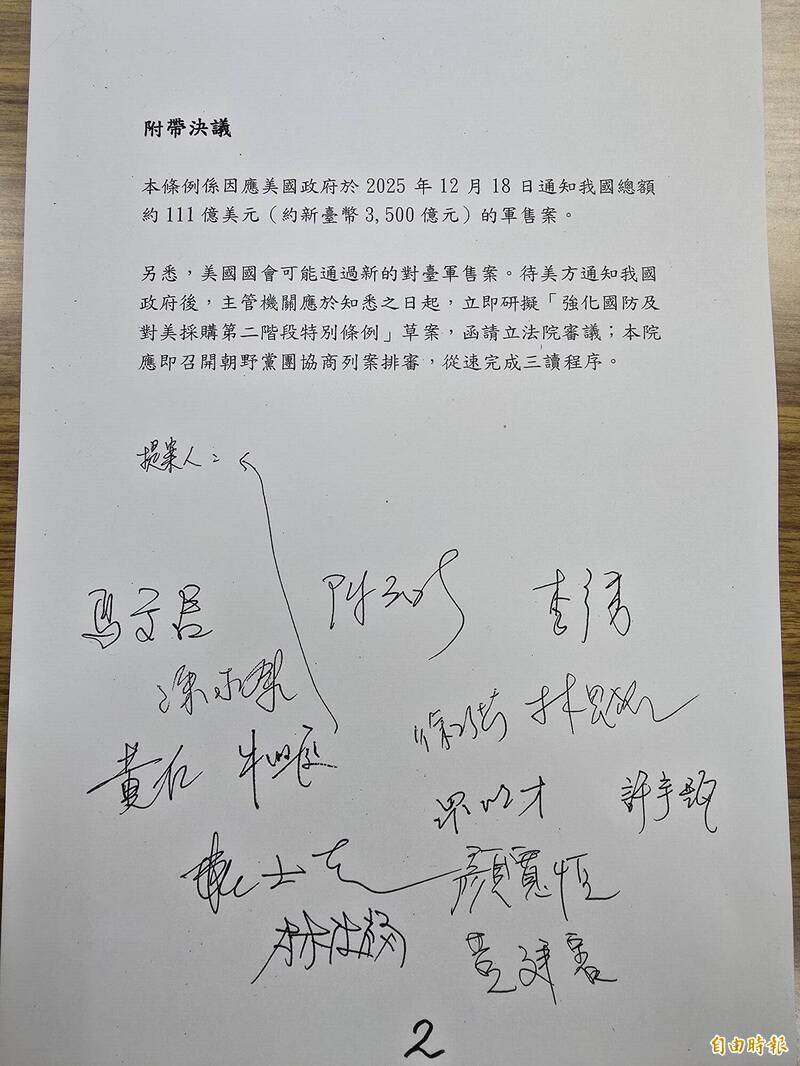 附帶決議
本條例係因應美國政府於 2025 年 12 月 18 日通知我國總額
約 111 億美元（約新臺幣 3,500 億元）的軍售案。
另悉，美國國會可能通過新的對臺軍售案。待美方通知我國
政府後，主管機關應於知悉之日起，立即研擬「強化國防及
對美採購第二階段特別條例」草案，函請立法院審議；本院
應即召開朝野黨團協商列案排審，從速完成三讀程序。
提案人：
馬文君
黃仁 牛煦庭
許宇甄
顏寬恒
黃建賓
2
自由時報